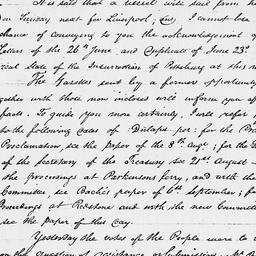 It is said that a vessel will sail from h
on Tuesday next for Liverpool, Sir, I cannot lose
chance of conveying to you the acknowledgement of
letters of the 26th June and Duplicate of June 23d
ical State of the Insurrection of Pittsburg at this m
The Gazettes sent by a former opportunity
gether with those now inclosed will inform you of
facts. To guide you more certainly, I will refer y
to the following dates of Dunlaps for: for the Pr
Proclamation, see the paper of the 8th Augt; for the
of the secretary of the Treasury see 21st August
the proceedings at Parkinsons ferry, and with the
Committee see Bache's paper of 6th September; for
Proceedings at Redstone and with the new Committee
see the paper of this day.
Yesterday the votes of the People were to
on the question of resistance or submission. Mr. B